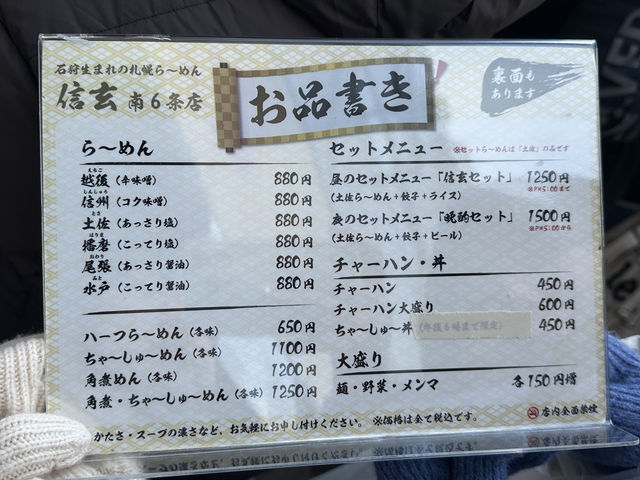 石狩生まれの札幌ら〜めん
信玄 南6条店
お品書き
裏面も
あります
ら〜めん
えちご
越後(辛味噌) 880円
しんしゅう
信州(コク味噌) 880円
とさ
土佐(あっさり塩) 880円
はりま
播磨(こってり塩) 880円
おわり
尾張(あっさり醤油) 880円
みと
水戸(こってり醤油) 880円
ハーフら〜めん(各味) 650円
ちゃ〜しゅ〜めん(各味) 1100円
角煮めん(各味) 1200円
角煮・ちゃ〜しゅ〜めん(各味) 1250円
セットメニュー ※セットら〜めんは「土佐」のみです
昼のセットメニュー「信玄セット」 1250円
(土佐ら〜めん+餃子+ライス) ※PM5:00まで
夜のセットメニュー「晩酌セット」 1500円
(土佐ら〜めん+餃子+ビール) ※PM5:00から
チャーハン・丼
チャーハン 450円
チャーハン大盛り 600円
ちゃ〜しゅ〜丼(午後6時まで限定) 450円
大盛り
麺・野菜・メンマ 各150円増
かたさ・スープの濃さなど、お気軽にお申し付けください。 ※価格は全て税込です。
店内全面禁煙